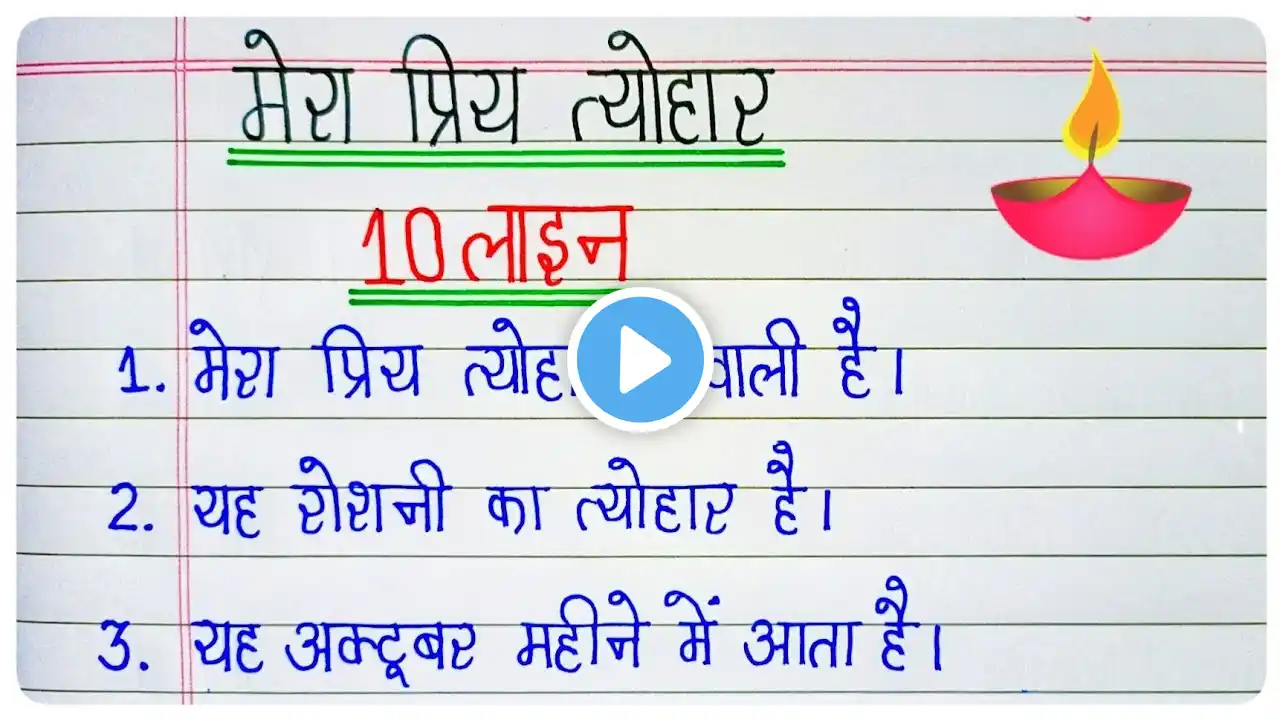 मेरा प्रिय त्योहार
10 लाइन
1. मेरा प्रिय त्योहार है।
2. यह रोशनी का त्योहार है।
3. यह अक्टूबर महीने में आता है।